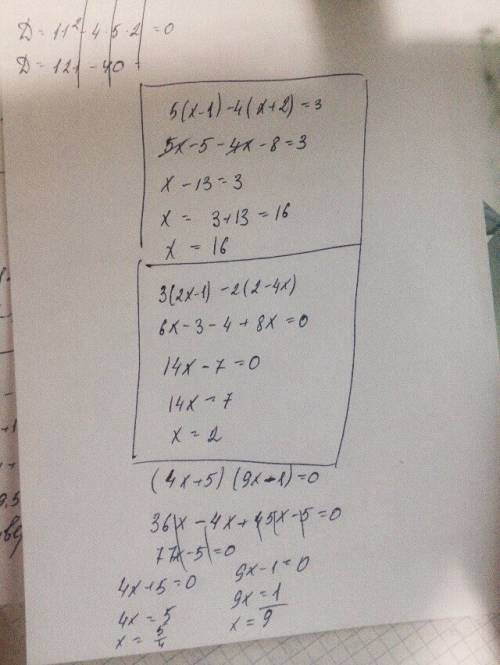 D = 11² - 4 · 5 · 2 = 0
D = 121 - 40 =
5(x-1) - 4(x+2) = 3
5x - 5 - 4x - 8 = 3
x - 13 = 3
x = 3 + 13 = 16
x = 16
3(2x-1) - 2(2-4x)
6x - 3 - 4 + 8x = 0
14x - 7 = 0
14x = 7
x = 2
(4x+5) (9x-1) = 0
36x - 4x + 45x - 5 = 0
77x - 5 = 0
4x + 5 = 0
4x = 5
x = 5/4
9x - 1 = 0
9x = 1
x = 9